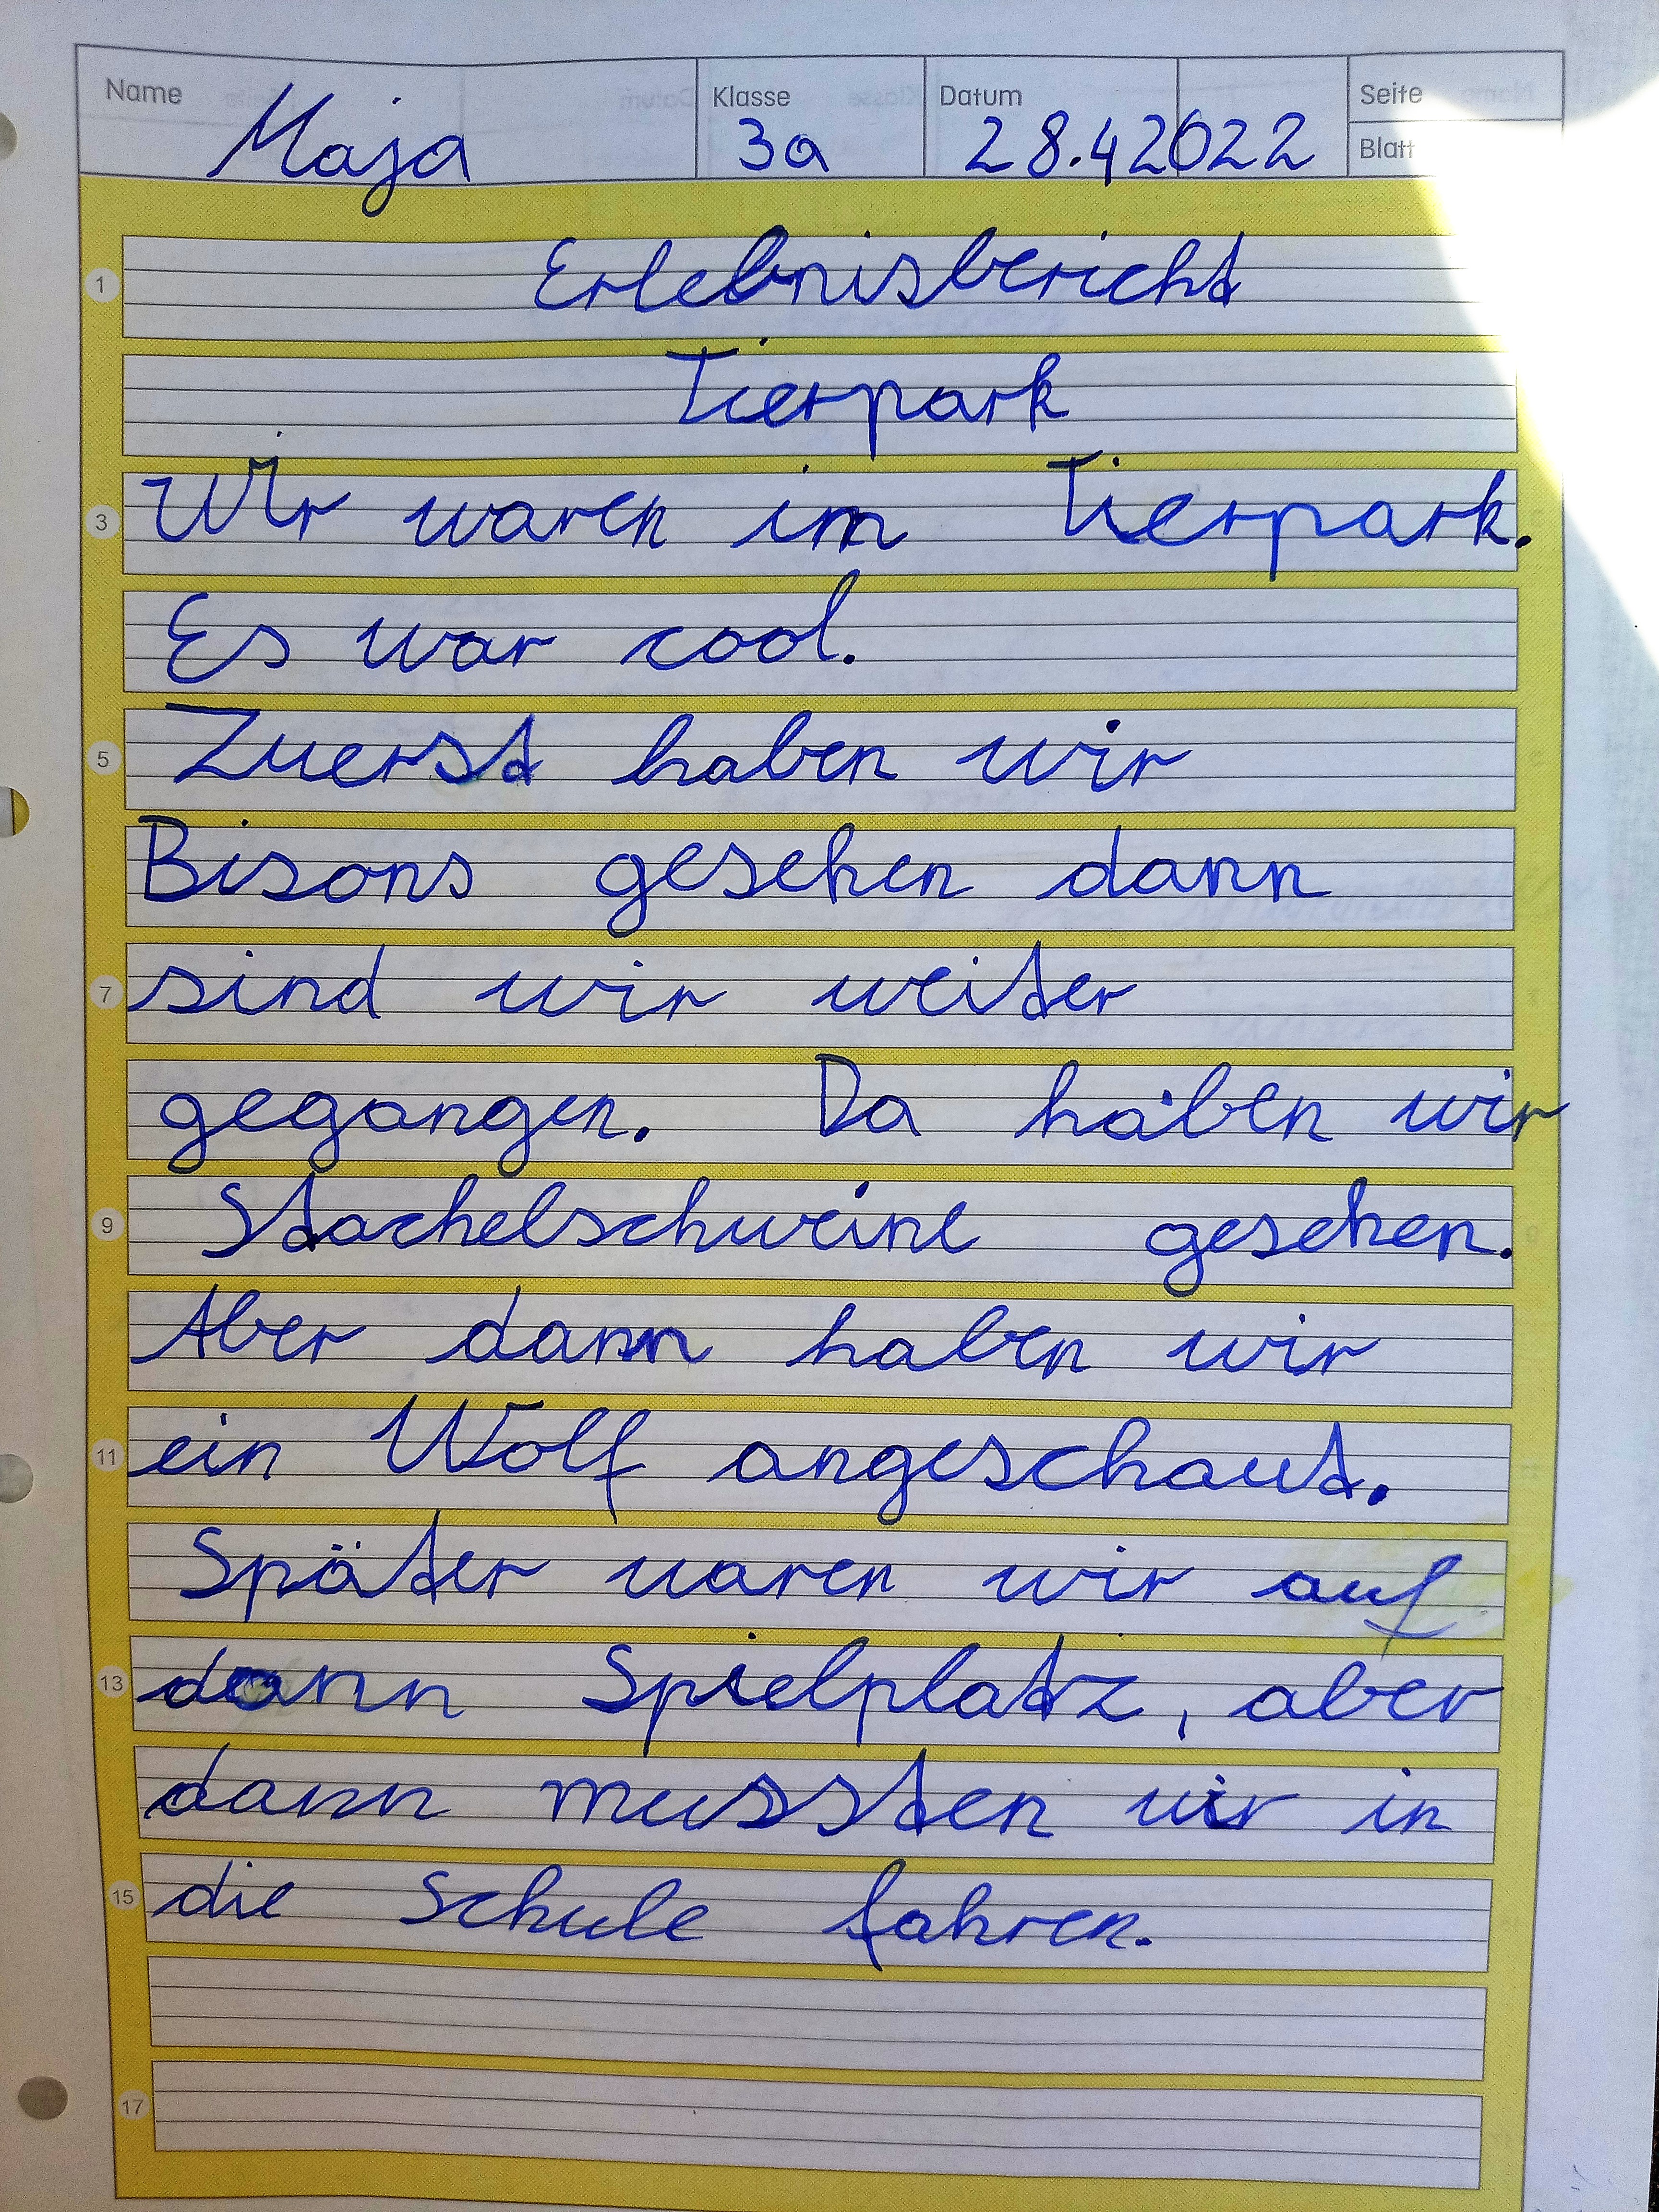 Name Klasse Datum Seite
Maja 3a 28.42022 Blatt
1 Erlebnisbericht
Tierpark
3 Wir waren im Tierpark.
Es war cool.
5 Zuerst haben wir
Bisons gesehen dann
7 sind wir weiter
gegangen. Da haben wir
9 Stachelschweine gesehen.
Aber dann haben wir
11 ein Wolf angeschaut.
Später waren wir auf
13 dann Spielplatz, aber
dann mussten wir in
15 die Schule fahren.
17